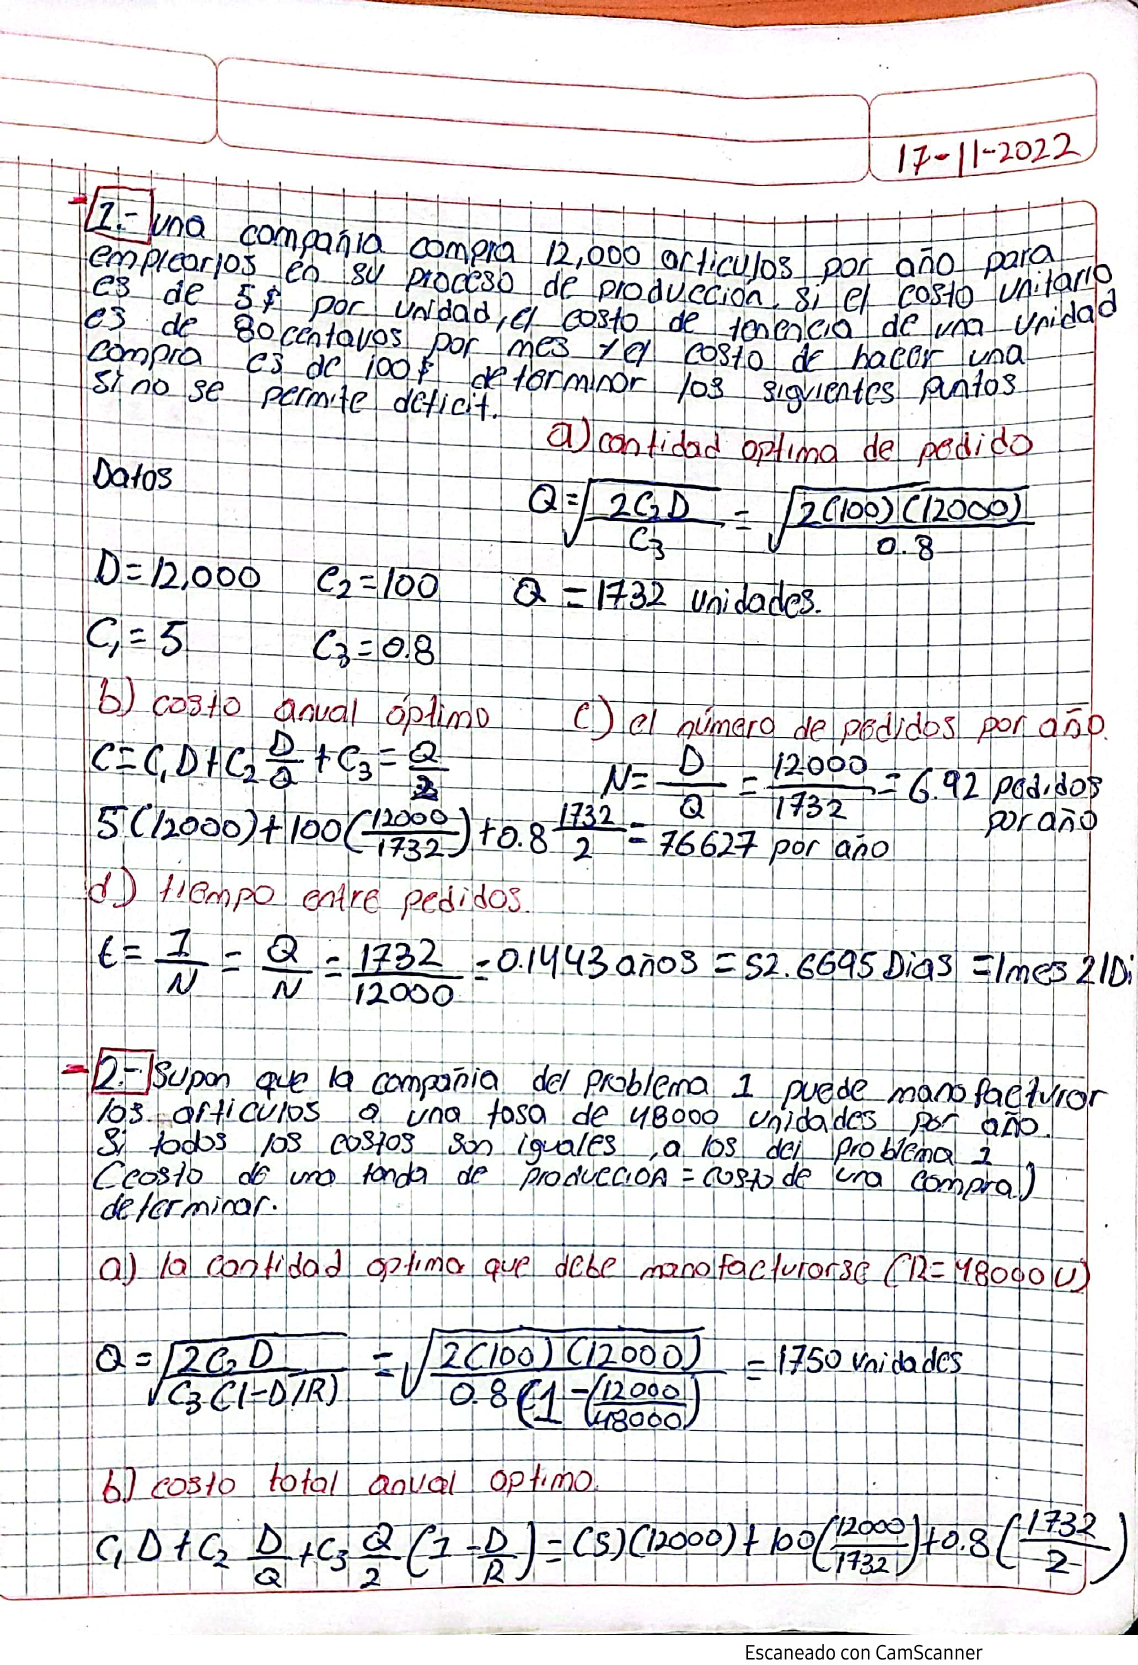 17-11-2022
1.- una compañia compra 12,000 articulos por año para
emplearlos en su proceso de producción. si el costo unitario
es de 5$ por unidad, el costo de tenencia de una unidad
es de 80 centavos por mes y el costo de hacer una
compra es de 100$ determinar los siguientes puntos
si no se permite deficit.
a) cantidad optima de pedido
Datos
Q = √(2C2D / C3) = √(2(100)(12000) / 0.8)
D = 12,000 C2 = 100 Q = 1732 unidades.
C1 = 5 C3 = 0.8
b) costo anual óptimo c) el número de pedidos por año.
C = C1D + C2 D/Q + C3 = Q/2 N = D/Q = 12000/1732 = 6.92 pedidos por año
5(12000) + 100(12000/1732) + 0.8 1732/2 = 76627 por año
d) tiempo entre pedidos.
t = 1/N = Q/N = 1732/12000 = 0.1443 años = 52.6695 Dias = 1mes 21Di
2.- Supon que la compañia del problema 1 puede manofacturar
los articulos a una tasa de 48000 unidades por año.
Si todos los costos son iguales, a los del problema 1
(costo de una tanda de producción = costo de una compra)
determinar.
a) la cantidad optima que debe manofacturarse (R=48000 U)
Q = √(2C2D / C3(1-D/R)) = √(2(100)(12000) / 0.8(1-(12000/48000))) = 1750 unidades
b) costo total anual optimo.
C1D + C2 D/Q + C3 Q/2 (1 - D/R) = (5)(12000) + 100(12000/1732) + 0.8(1732/2)
Escaneado con CamScanner